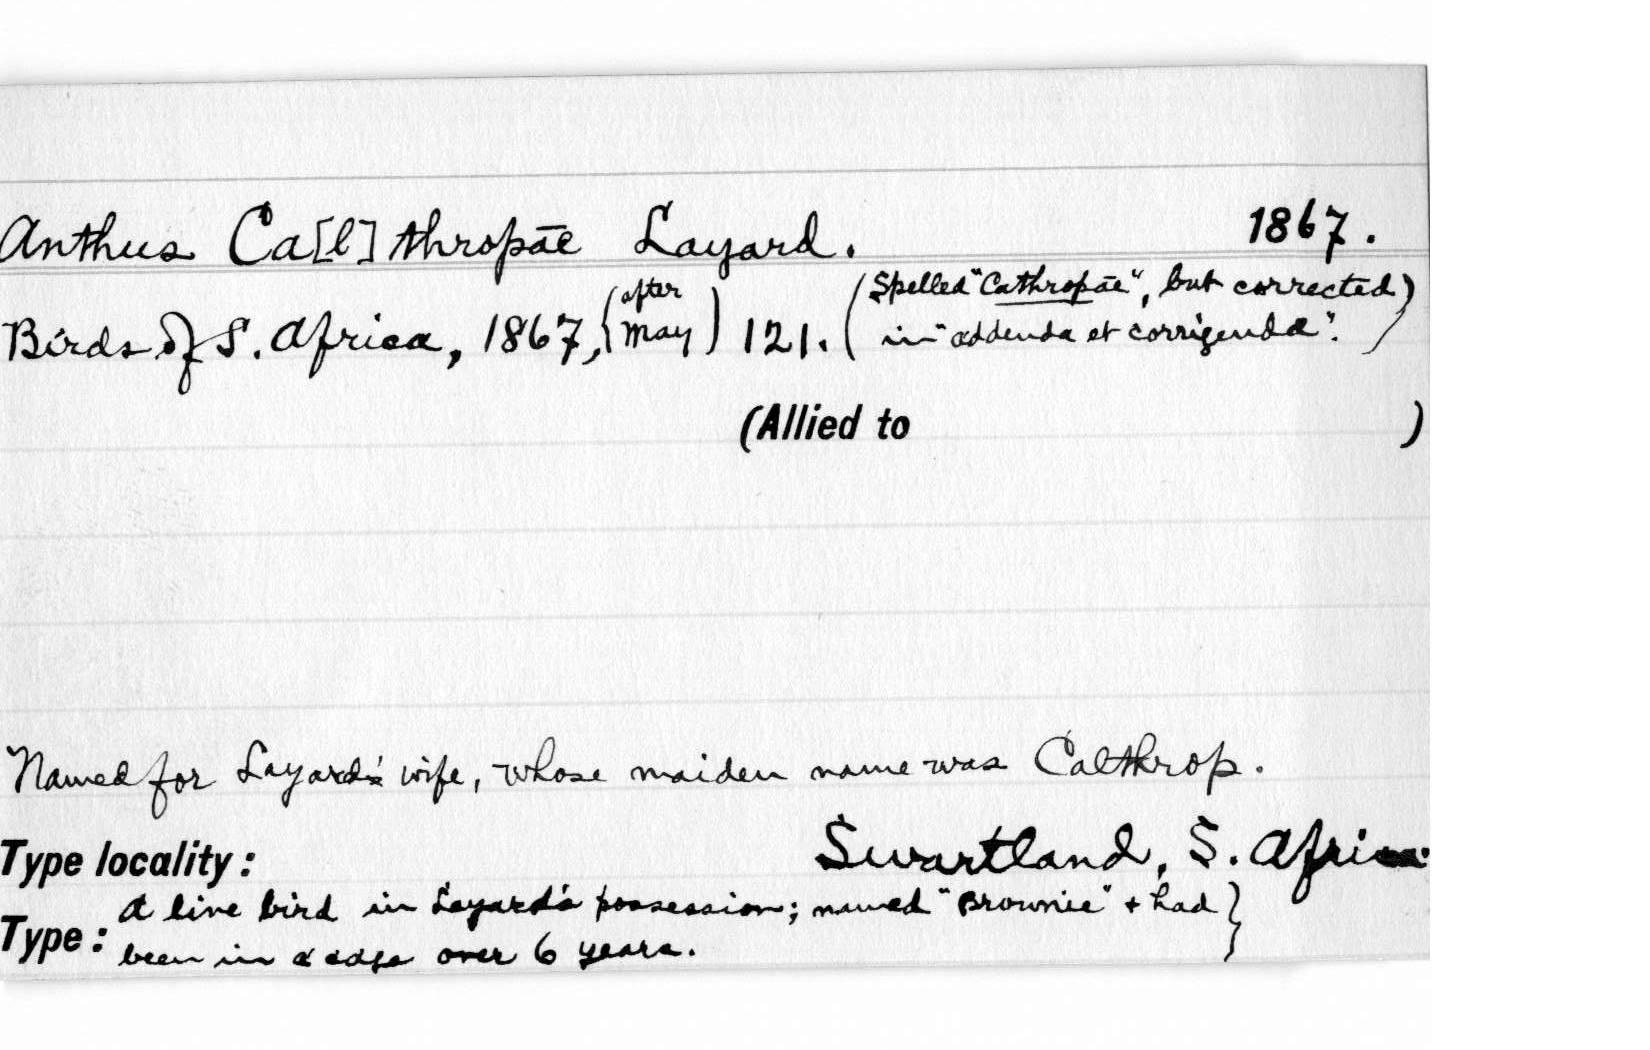 Anthus Ca[l]thropāe Layard. 1867.
Birds of S. Africa, 1867, (after May) 121. (Spelled "Cathropāe", but corrected
in "addenda et corrigenda".)
(Allied to )
Named for Layard's wife, whose maiden name was Calthrop.
Type locality: Swartland, S. Africa.
Type: A live bird in Layard's possession; named "Brownie" + had
been in a cage over 6 years.